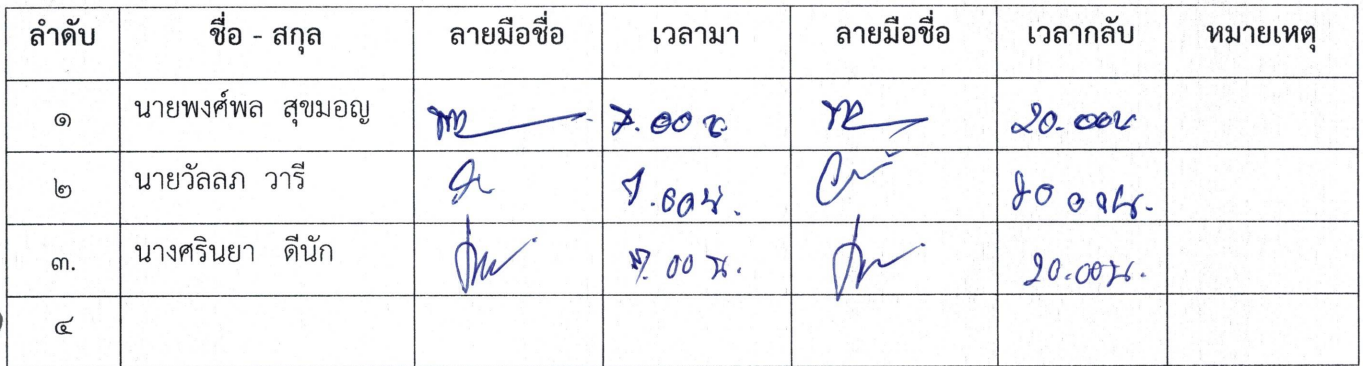 ลำดับ ชื่อ - สกุล ลายมือชื่อ เวลามา ลายมือชื่อ เวลากลับ หมายเหตุ
๑ นายพงศ์พล สุขมอญ 7.00 น 20.00น
๒ นายวัลลภ วารี 7.00น. 20.00น.
๓. นางศรินยา ดีนัก 7.00 น. 20.00น.
๔